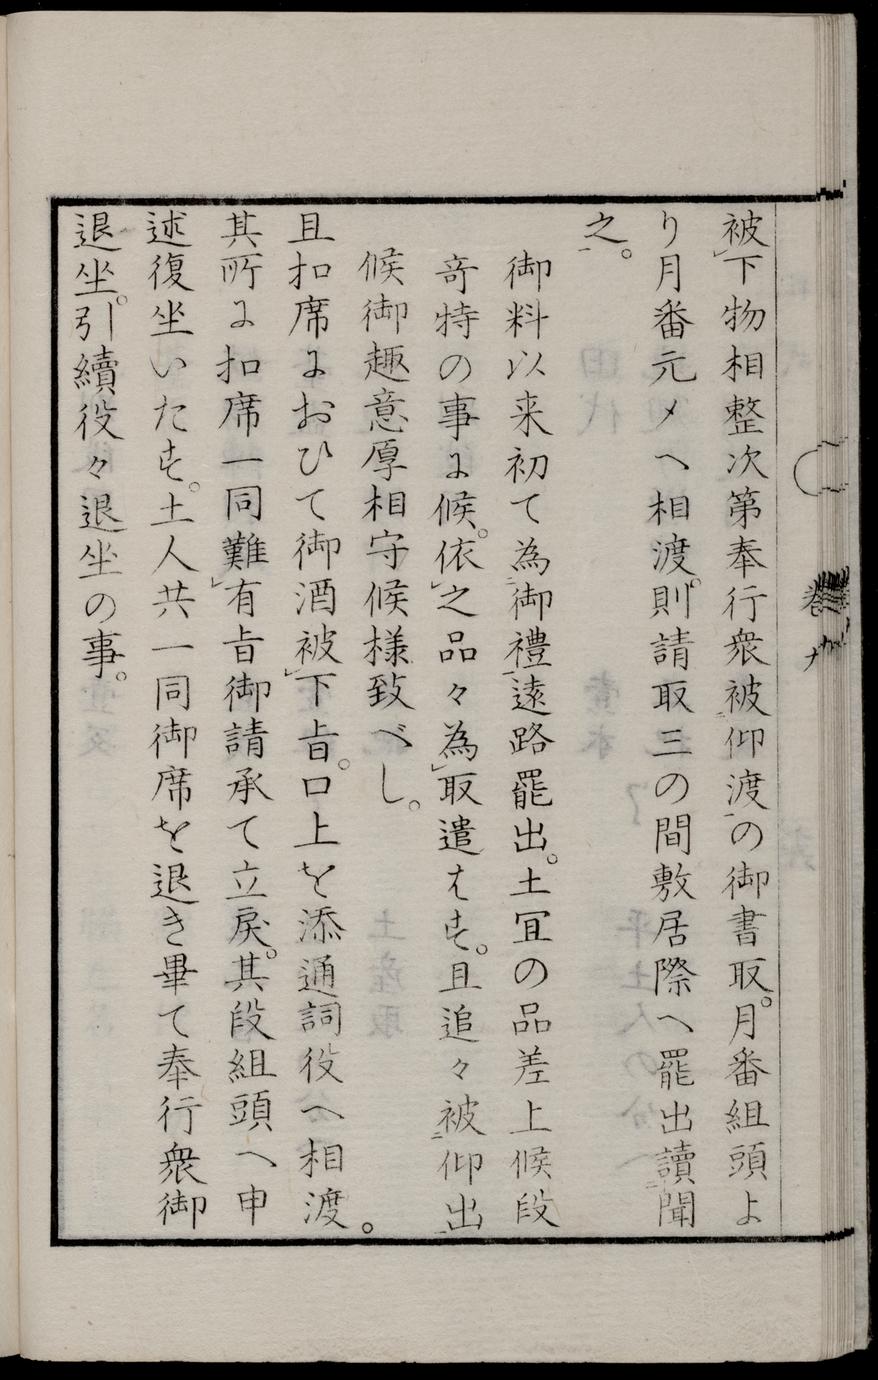 被下物相整次第奉行衆被仰渡の御書取。月番組頭よ
り月番元〆へ相渡。則請取三の間敷居際へ罷出讀聞
之。
御料以来初て為御禮遠路罷出。土宜の品差上候段
竒特の事に候。依之品々為取遣はす。且追々被仰出
候御趣意厚相守候様致べし。
且扣席におひて御酒被下旨。口上を添通詞役へ相渡。
其所に扣席一同難有旨御請承て立戻。其段組頭へ申
述復坐いたす。土人共一同御席を退き畢て奉行衆御
退坐。引續役々退坐の事。